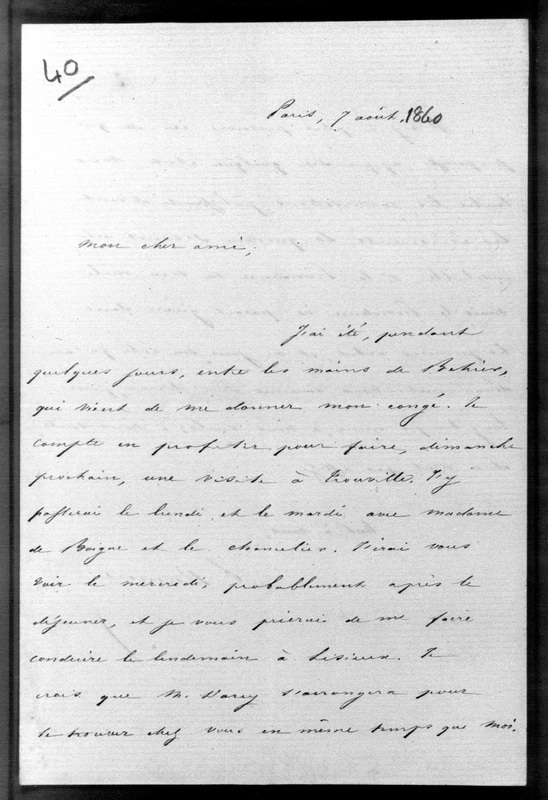 40
Paris, 7 août, 1860
Mon cher ami,
J'ai été, pendant
quelques jours, entre les mains de Béhier,
qui vient de me donner mon congé. Je
compte en profiter pour faire, dimanche
prochain, une visite à Trouville. J'y
passerai le lundi et le mardi avec madame
de Boigne et le chancelier. J'irai vous
voir le mercredi, probablement après le
déjeuner, et je vous prierai de me faire
conduire le lendemain à Lisieux. Je
crois que M. s'arrangera pour
se trouver chez vous en même temps que moi.